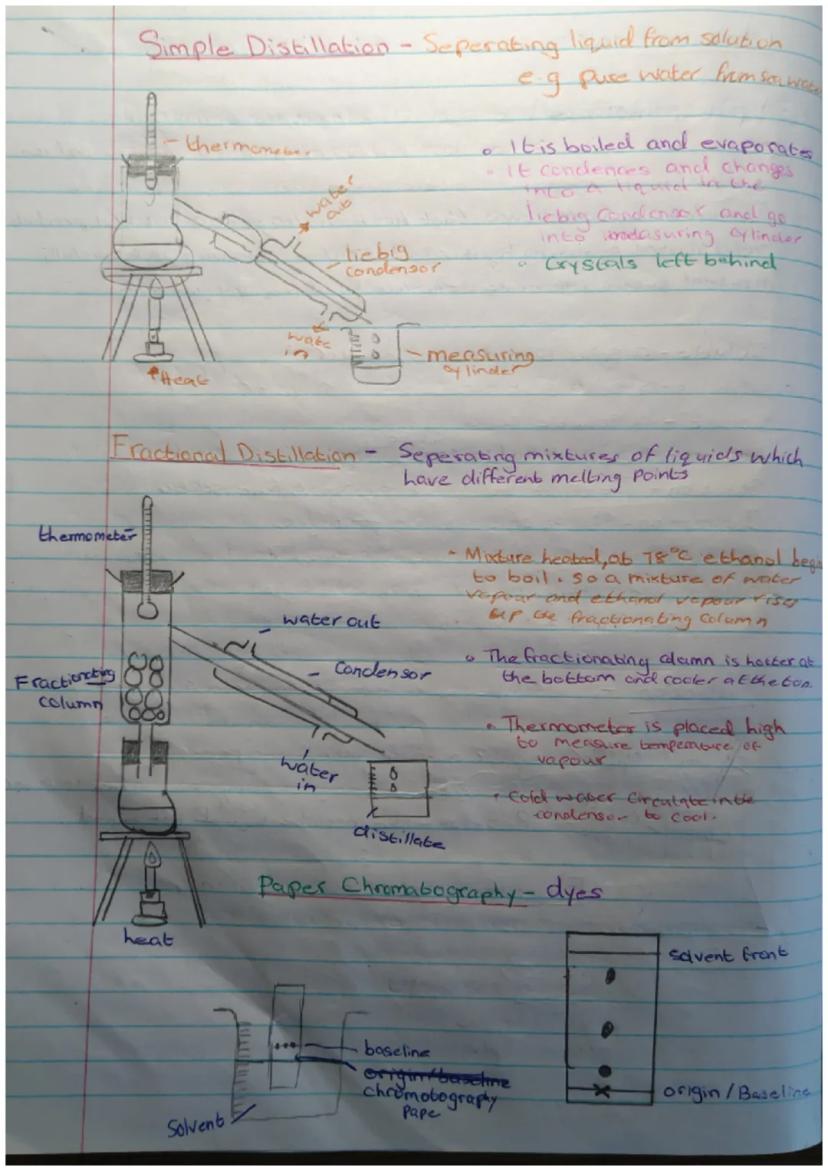 Simple Distillation - Seperating liquid from solution
e.g pure water from sea water
thermometer
• It is boiled and evaporates
• It condences and changes
into a liquid in the
liebig condensor and go
into measuring cylinder
• Crystals left behind
water
out
liebig
condensor
water
in
measuring
cylinder
Heat
Fractional Distillation - Seperating mixtures of liquids which
have different melting points
thermometer
- Mixture heated, at 78°C ethanol begins
to boil. so a mixture of water
vapour and ethanol vapour rises
up the fractionating column
water out
condensor
• The fractionating column is hotter at
the bottom and cooler at the top.
Fractionating
column
• Thermometer is placed high
to measure temperature of
vapour
water
in
• Cold water circulate in the
condensor to cool.
distillate
heat
Paper Chromatography - dyes
solvent front
baseline
origin/baseline
chromotography
pape
Solvent
origin / Baseline